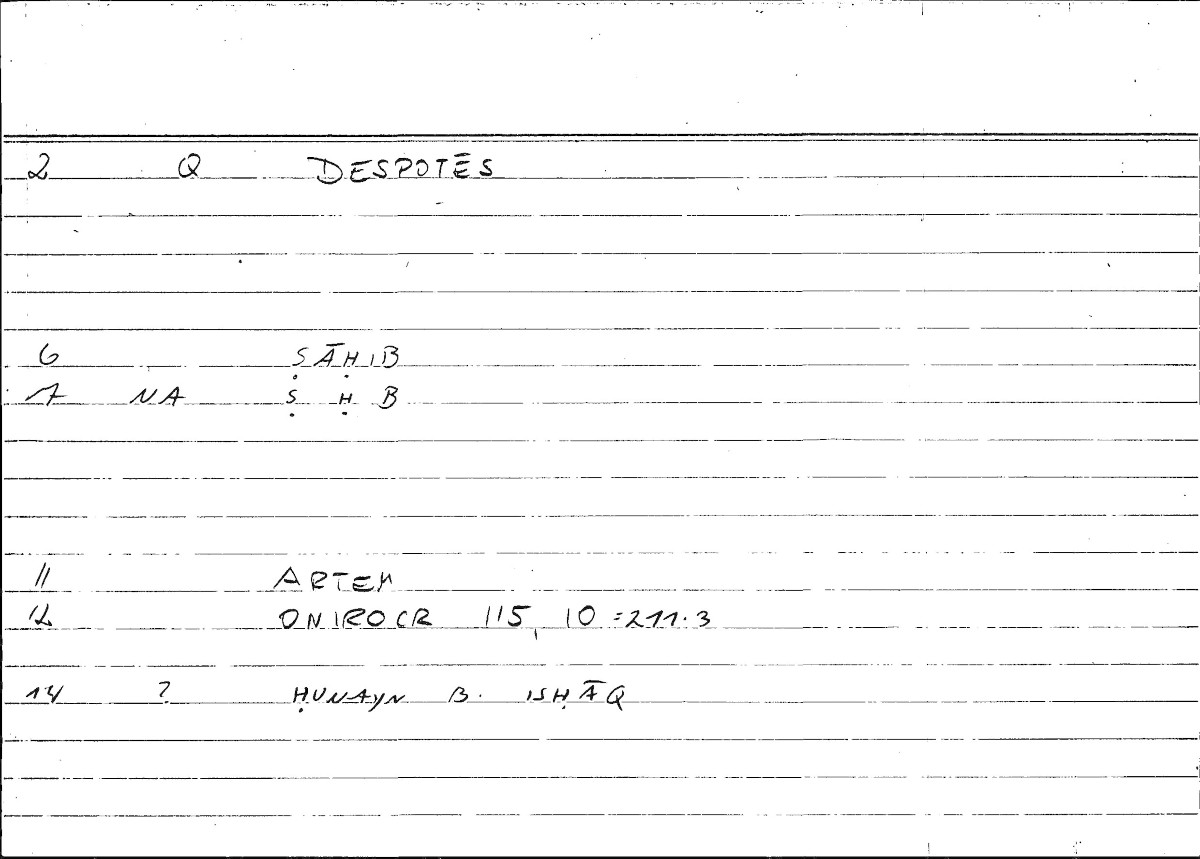 2 Q DESPOTĒS
6 ṢĀḤIB
7 NA Ṣ Ḥ B
11 ARTEM
12 ONIROCR 115, 10 = 211.3
14 ? ḤUNAYN B. ISḤĀQ